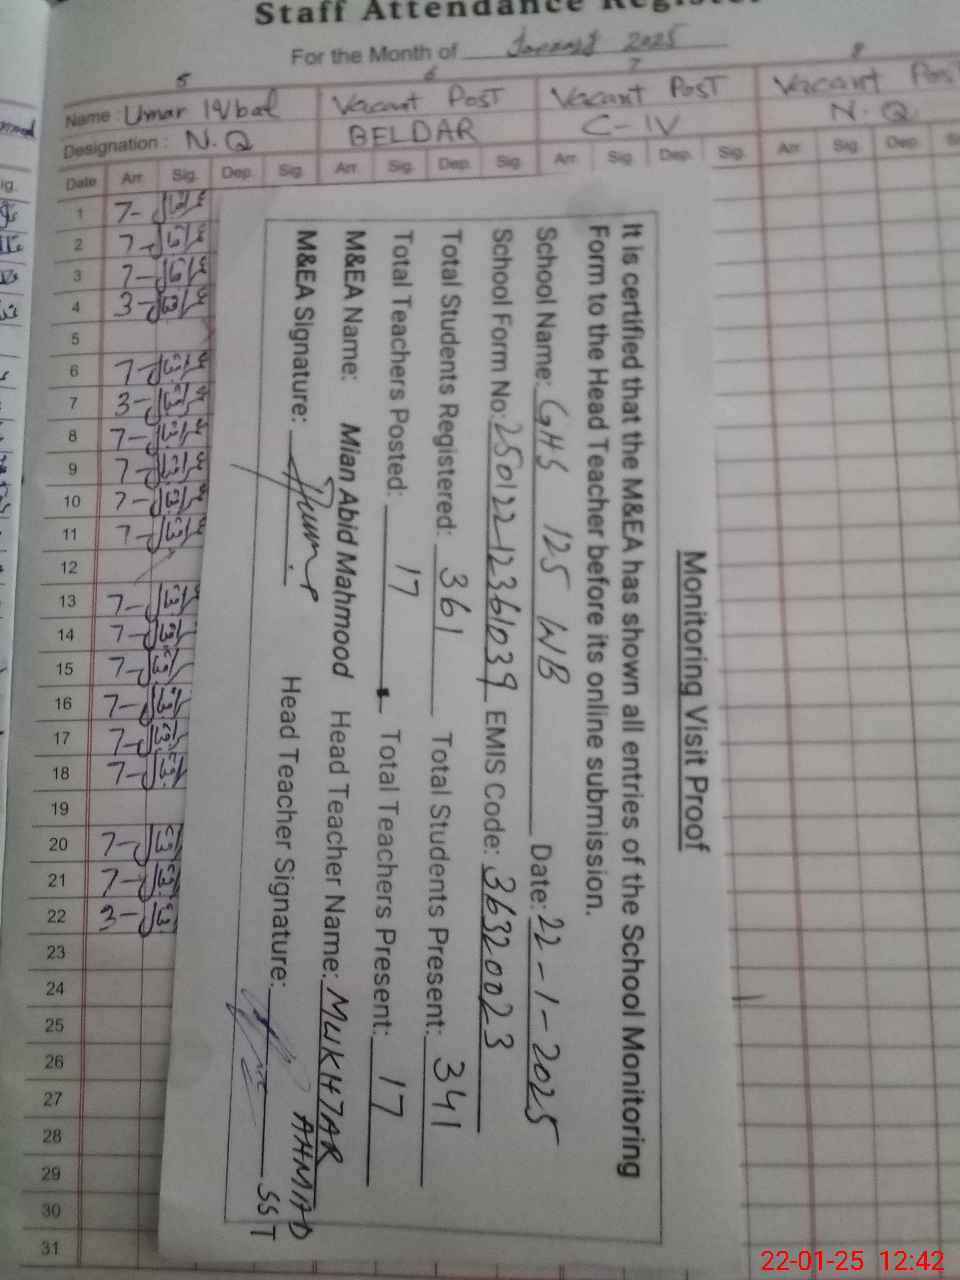 Staff Attendance Register
For the Month of January 2025
5 6 7 8
Name : Umar Iqbal Vacant Post Vacant Post Vacant Post
Designation : N.Q BELDAR C-IV N.Q.
Date Arr. Sig. Dep. Sig. Arr. Sig. Dep. Sig. Arr. Sig. Dep. Sig. Arr. Sig. Dep.
1 7-
2 7-
3 7-
4 3-
5
6 7-
7 3-
8 7-
9 7-
10 7-
11 7-
12
13 7-
14 7-
15 7-
16 7-
17 7-
18 7-
19
20 7-
21 7-
22 3-
23
24
25
26
27
28
29
30
31
Monitoring Visit Proof
It is certified that the M&EA has shown all entries of the School Monitoring
Form to the Head Teacher before its online submission.
School Name: GHS 125 WB Date: 22-1-2025
School Form No: 250122-12361039 EMIS Code: 36320023
Total Students Registered: 361 Total Students Present: 341
Total Teachers Posted: 17 Total Teachers Present: 17
M&EA Name: Mian Abid Mahmood Head Teacher Name: MUKHTAR AHMAD
M&EA Signature: Head Teacher Signature: SST
22-01-25 12:42